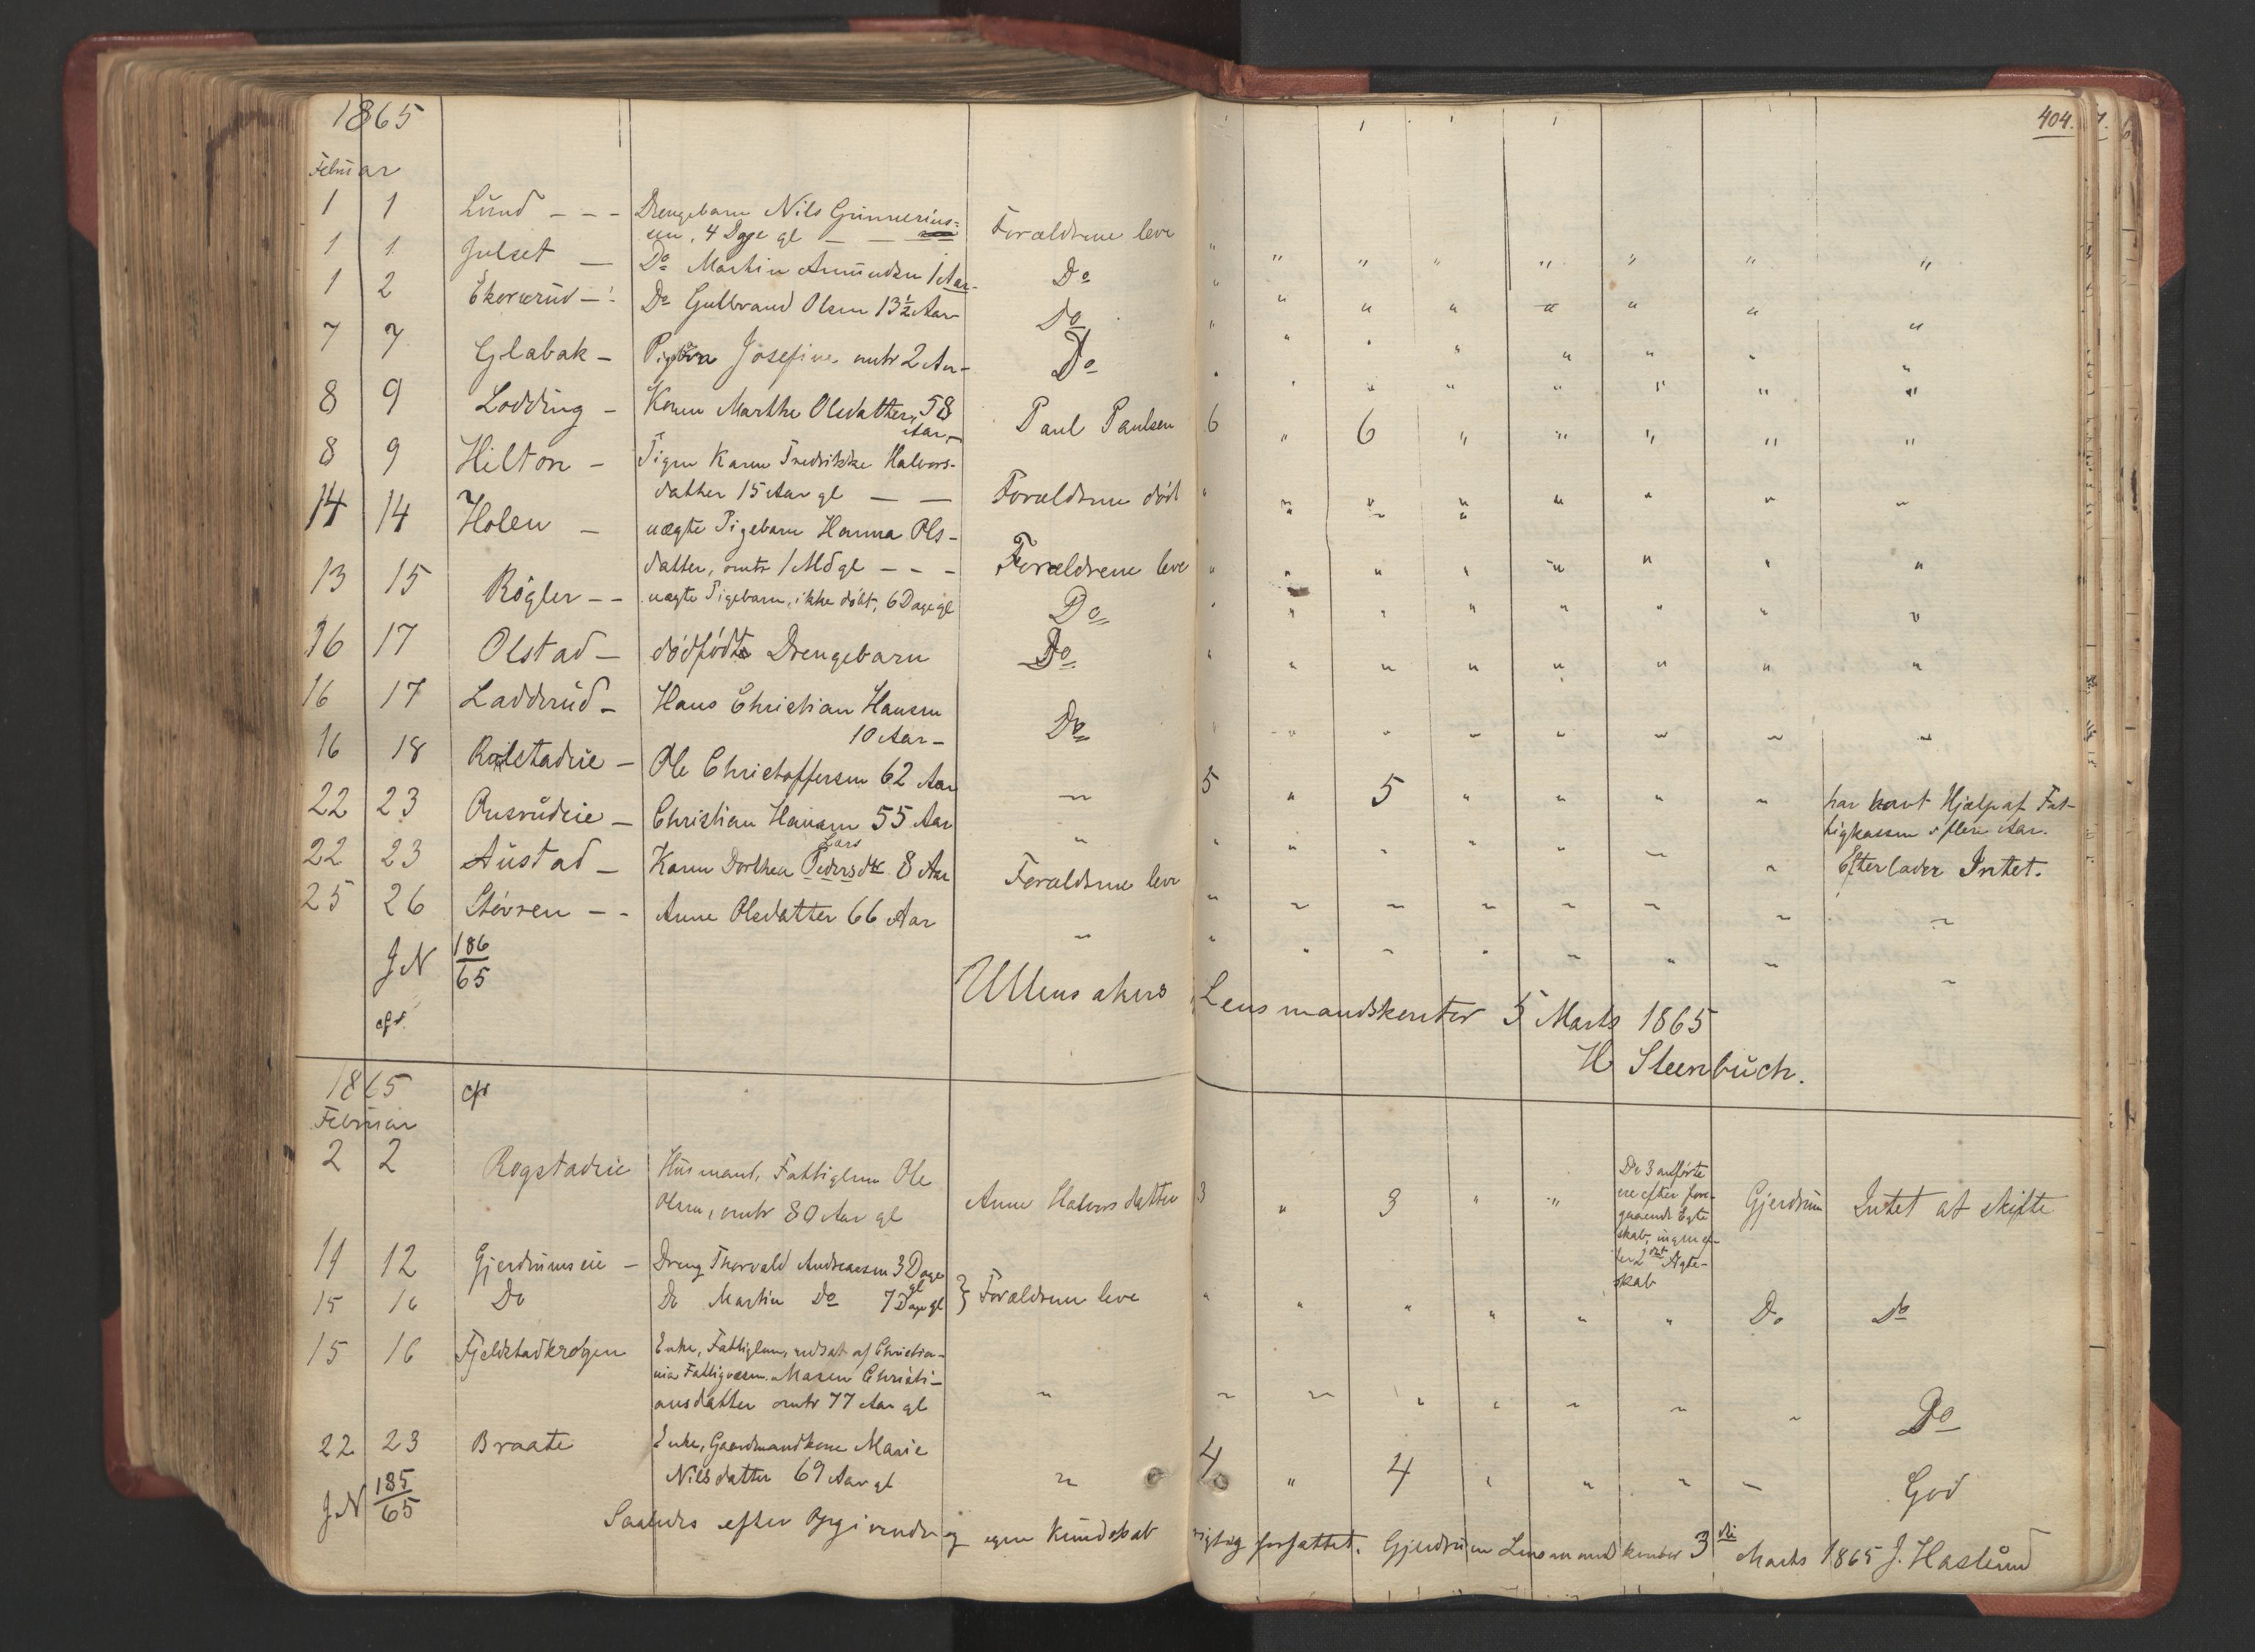 1865
404.
Februar
1 1 Lund - - - Drengebarn Nils Gunnerius=
sen, 4 Dage gl — — Forældrene leve " " " " " " " "
1 1 Julset — Do Martin Amundsen 1 Aar - Do " " " " " " " "
1 2 Ekornrud - Do Gulbrand Olsen 13½ Aar Do " " " " " " " "
7 7 Glabak - Josefine omtr 2 Aar - Do " " " " " " " "
8 9 Lodding - Konen Marthe Olsdatter, 58
Aar, - Paul Paulsen 6 " 6 " " " " "
8 9 Hilton - Pigen Karen Fredrikke Halvors-
datter 15 Aar gl — — Forældrene død " " " " " " " "
14 14 Holen - uægte Pigebarn Hanna Ols-
datter, omtr 1 Md gl - - - Forældrene leve " " " " " " " "
13 15 Rögler - - uægte Pigebarn, ikke döbt, 6 Dage gl Do " " " " " " " "
16 17 Olstad - dödfödt Drengebarn Do " " " " " " " "
16 17 Ladderud - Hans Christian Hansen
10 Aar - Do " " " " " " " "
16 18 - Ole Christoffersen 62 Aar " 5 " 5 " " " " har havt Hjælp af Fat-
tigkassen i flere Aar.
22 23 Rusrudeie - Christian Hansen 55 Aar " " " " " " " " Efterlader Intet.
Lars
22 23 Austad - Karen Dorthea Pedersdtr 8 Aar Forældrene leve " " " " " " " "
25 26 Stövren - - Anne Olsdatter 66 Aar " " " " " " " " "
J N 186
65
Ullensakers Lensmandskontor 5 Marts 1865
cfr.
H Steenbuch.
1865 cfr
Februar
2 2 Rogstadeie Husmand, Fattiglem Ole
Olsen, omtr 80 Aar gl Anne Halvorsdatter 3 " 3 " "
De 3 anförte
ere efter fore-
gaaende Egte
skab, ingen ef-
ter 2det Ægte-
skab
Gjerdrum Intet at skifte
11 12 Gjerdrumseie - Dreng Thorvald Andreassen 3 Dage
gl
15 16 Do Do Martin Do 7 Dage gl } Forældrene leve " " " " " " Do Do
15 16 Fjeldstadkrogen Enke, Fattiglem, udsat af Christia-
nia Fattigvæsen. Maren Christi-
ansdatter omtr 77 Aar gl " " " " " " " " Do
22 23 Braate Enke, Gaardmandkone Marie
Nilsdatter 69 Aar gl " 4 " 4 " " " - God
J N 185
65
Saaledes efter Opgivende og egen Kundskab rigtig forfattet. Gjerdrum Lensmandskontor 3die Marts 1865 J. Haslund